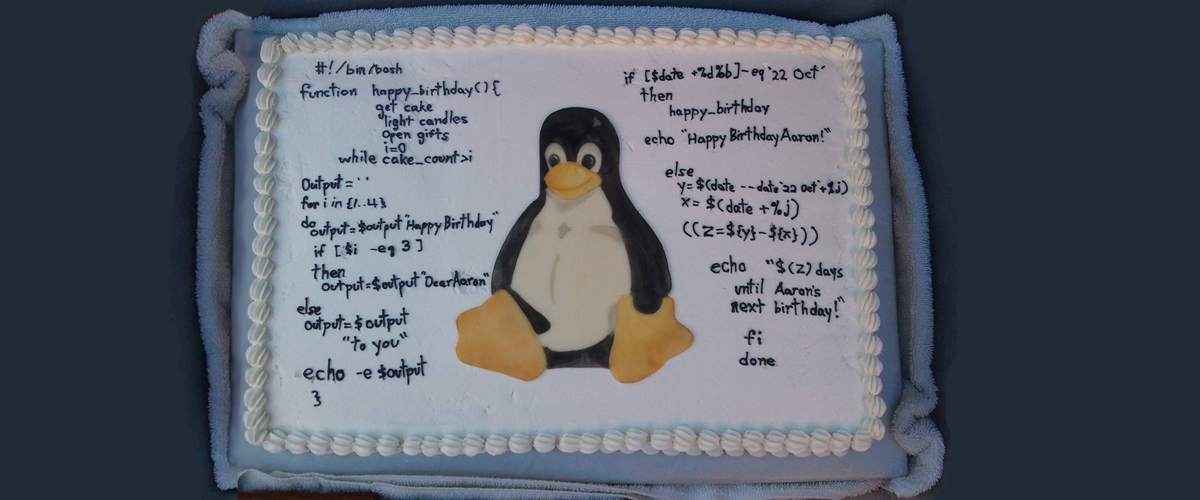 #!/bin/bash
function happy_birthday() {
get cake
light candles
open gifts
i=0
while cake_count>i
Output=''
for i in {1..4}
do
output=$output"Happy Birthday"
if [$i -eq 3]
then
output=$output"Dear Aaron"
else
output=$output
"to you"
echo -e $output
}
if [$date +%d%b]-eq '22 Oct'
then
happy_birthday
echo "Happy Birthday Aaron!"
else
y=$(date --date'22 Oct'+%j)
x=$(date +%j)
((z=${y}-${x}))
echo "$(z) days
until Aaron's
next birthday!"
fi
done